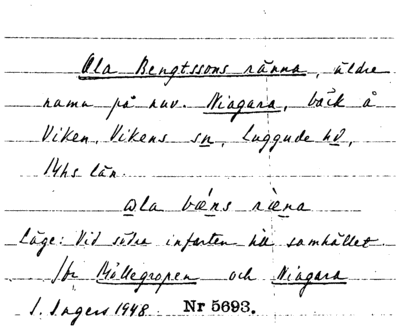 Ola Bengtssons ränna, äldre
namn på nuv. Niagara, bäck å
Viken, Vikens sn, Luggude hd,
Mhs län.
ɷla bæ̀ns ræ̀na
Läge: Vid södra infarten till samhället
jfr Möllegropen och Niagara
I. Ingers 1948. Nr 5693.